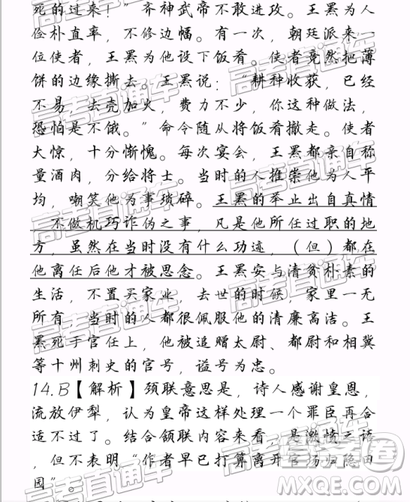 死的过来！” 齐神武帝不敢进攻。王罴为人
俭朴直率，不修边幅。有一次，朝廷派来一
位使者，王罴为他设下饭肴，使者竟然把薄
饼的边缘撕去，王罴说：“耕种收获，已经
不易；去壳加火，费力不少，你这种做法，
恐怕是不饿。”命令随从将饭肴撤走。使者
大惊，十分惭愧。每次宴会，王罴都亲自称
量酒肉，分给将士。当时的人推崇他为人平
均，嘲笑他为事琐碎。王罴的举止出自真情
不做机巧诈伪之事，凡是他所任过职的地
方，虽然在当时没有什么功迹，（但）都在
他离任后他才被思念。王罴安与清贫朴素的
生活，不置买家业，去世的时候，家里一无
所有。当时的人都很佩服他的清廉高洁。王
罴死于官任上，他被追赠太尉、都尉和相冀
等十州刺史的官号，谥号为忠。
14.B【解析】颈联意思是，诗人感谢皇恩，
流放伊犁，认为皇帝这样处理一个罪臣再合
适不过了。结合颔联内容来看，是激愤之语
，但不表明“作者早已打算离开官场归隐田
园”。
高考直通车
答案圈
www.daanquan.com